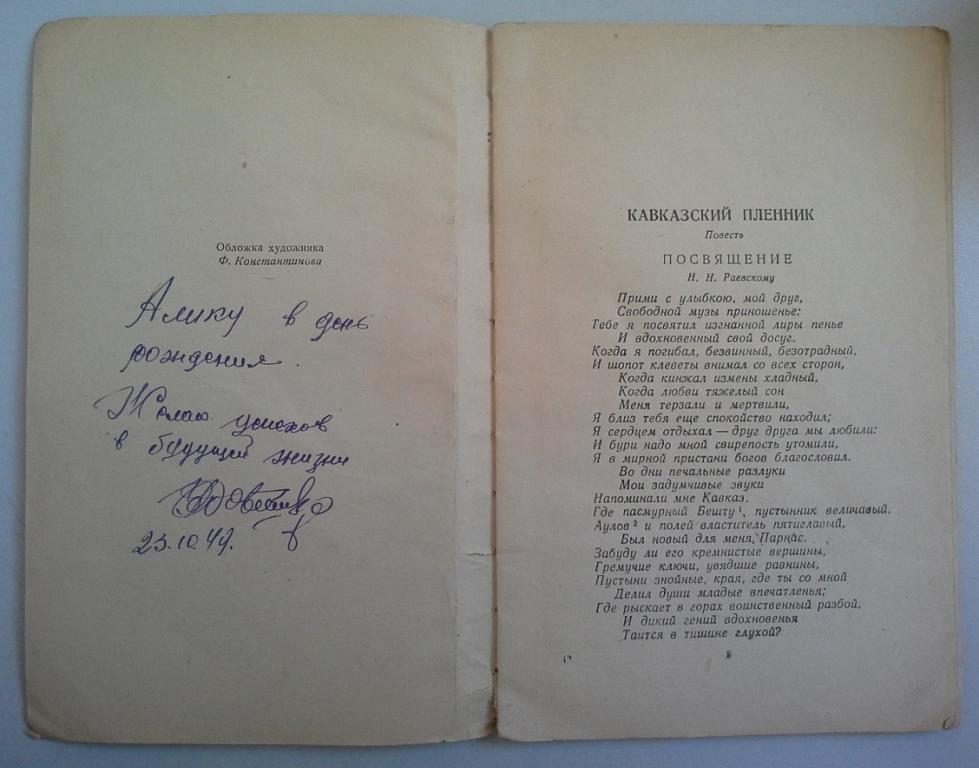 Обложка художника
Ф. Константинова
Алику в день
рождения.
Желаю успехов
в будущей жизни
23.10.49.
КАВКАЗСКИЙ ПЛЕННИК
Повесть
ПОСВЯЩЕНИЕ
Н. Н. Раевскому
Прими с улыбкою, мой друг,
Свободной музы приношенье:
Тебе я посвятил изгнанной лиры пенье
И вдохновенный свой досуг.
Когда я погибал, безвинный, безотрадный,
И шопот клеветы внимал со всех сторон,
Когда кинжал измены хладный,
Когда любви тяжелый сон
Меня терзали и мертвили,
Я близ тебя еще спокойство находил;
Я сердцем отдыхал — друг друга мы любили:
И бури надо мной свирепость утомили,
Я в мирной пристани богов благословил.
Во дни печальные разлуки
Мои задумчивые звуки
Напоминали мне Кавказ.
Где пасмурный Бешту ¹, пустынник величавый,
Аулов ² и полей властитель пятиглавый,
Был новый для меня, Парнас...
Забуду ли его кремнистые вершины,
Гремучие ключи, увядшие равнины,
Пустыни знойные, края, где ты со мной
Делил души младые впечатленья;
Где рыскает в горах воинственный разбой,
И дикий гений вдохновенья
Таится в тишине глухой?